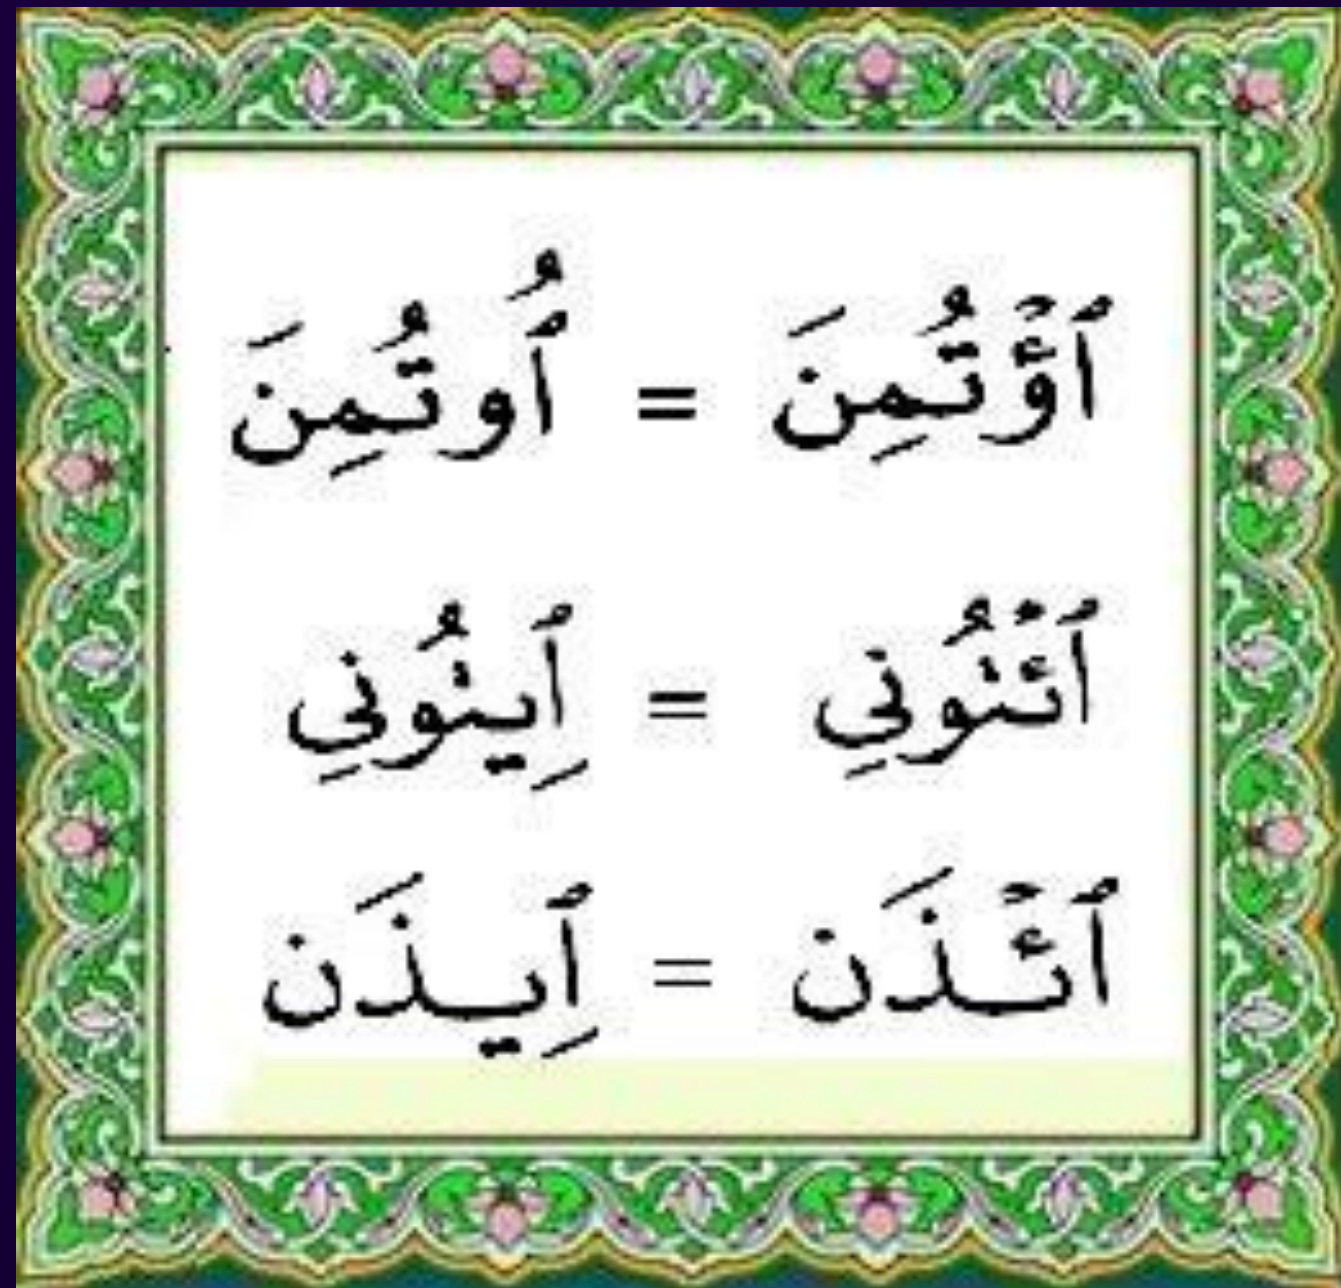 ٱؤْتُمِنَ = ٱُوتُمِنَ
ٱئْتُونِي = ٱِيتُونِي
ٱئْذَن = ٱِيذَن